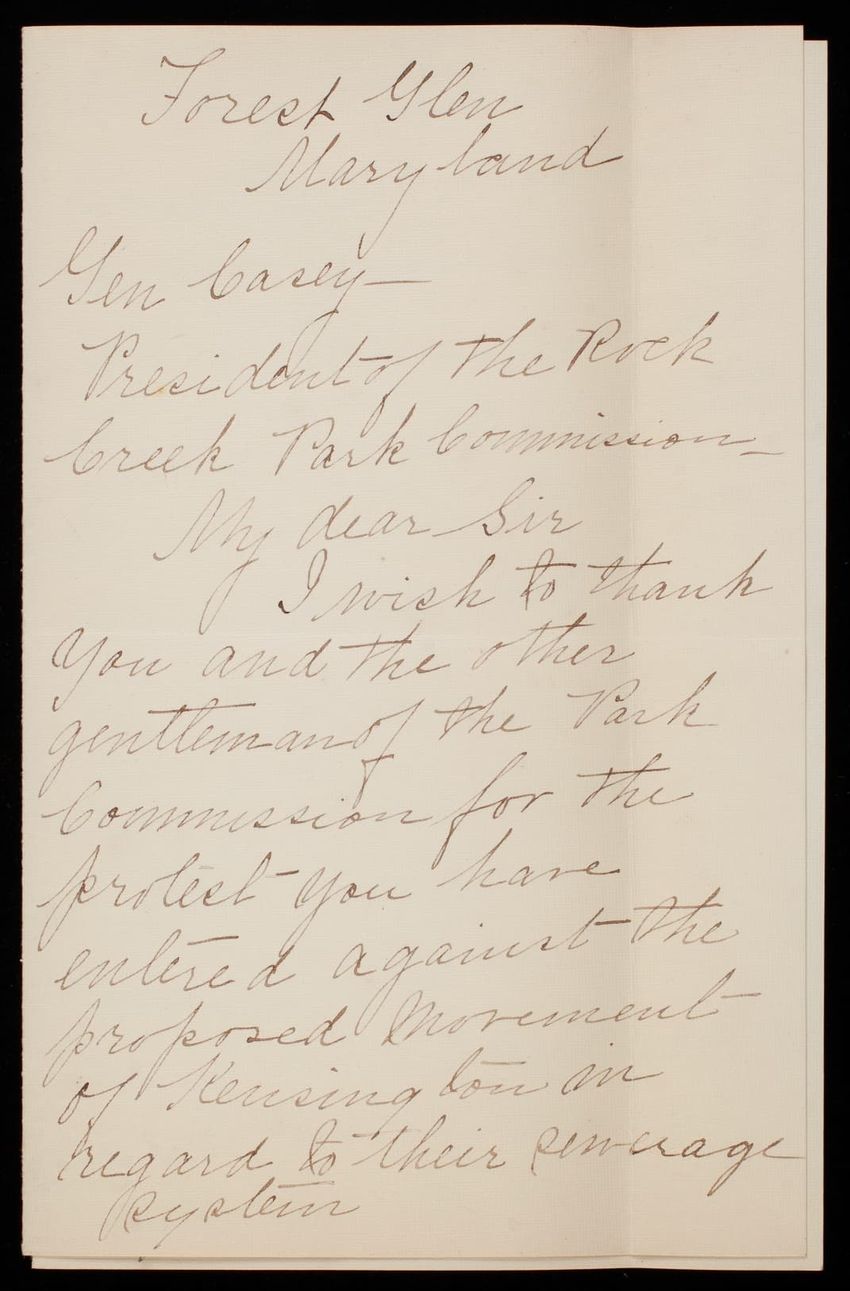 Forest Glen
Maryland
Gen Casey—
President of the Rock
Creek Park Commission—
My dear Sir
I wish to thank
you and the other
gentleman of the Park
Commission for the
protest you have
entered against the
proposed movement
of Kensington in
regard to their sewerage
system